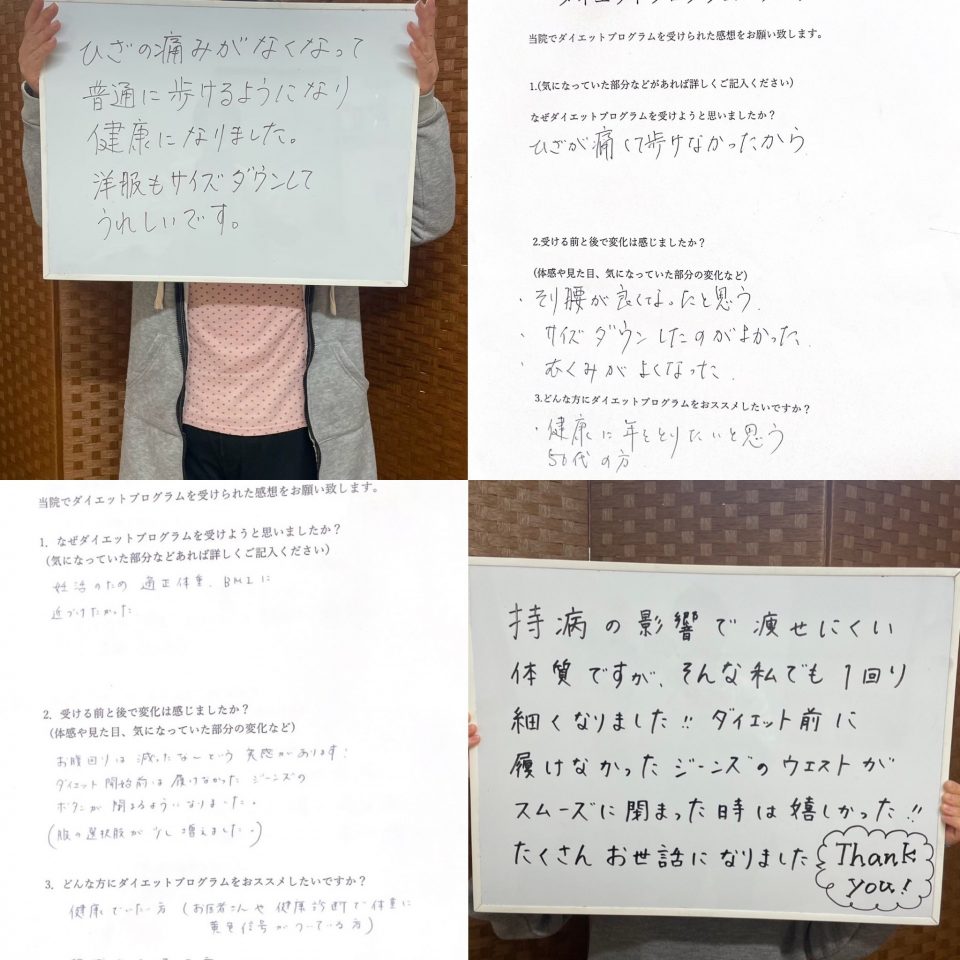 ひざの痛みがなくなって
普通に歩けるようになり
健康になりました。
洋服もサイズダウンして
うれしいです。
当院でダイエットプログラムを受けられた感想をお願い致します。
1.(気になっていた部分などがあれば詳しくご記入ください)
なぜダイエットプログラムを受けようと思いましたか？
ひざが痛くて歩けなかったから
2.受ける前と後で変化は感じましたか？
(体感や見た目、気になっていた部分の変化など)
・そり腰が良くなったと思う.
・サイズダウンしたのがよかった.
・むくみがよくなった.
3.どんな方にダイエットプログラムをおススメしたいですか？
・健康に年をとりたいと思う
50代の方.
当院でダイエットプログラムを受けられた感想をお願い致します。
1. なぜダイエットプログラムを受けようと思いましたか？
(気になっていた部分などあれば詳しくご記入ください)
妊活のため 適正体重、BMIに
近づけたかった
2. 受ける前と後で変化は感じましたか？
(体感や見た目、気になっていた部分の変化など)
お腹回りは減ったな〜という実感があります！
ダイエット開始前は履けなかったジーンズの
ボタンが閉まるようになりました。
(服の選択肢が少し増えました。)
3. どんな方にダイエットプログラムをおススメしたいですか？
健康でいたい方 (お医者さんや健康診断で体重に
黄色信号がついている方)
持病の影響で痩せにくい
体質ですが、そんな私でも1回り
細くなりました!! ダイエット前に
履けなかったジーンズのウエストが
スムーズに閉まった時は嬉しかった!!
たくさんお世話になりました
Thank
you!